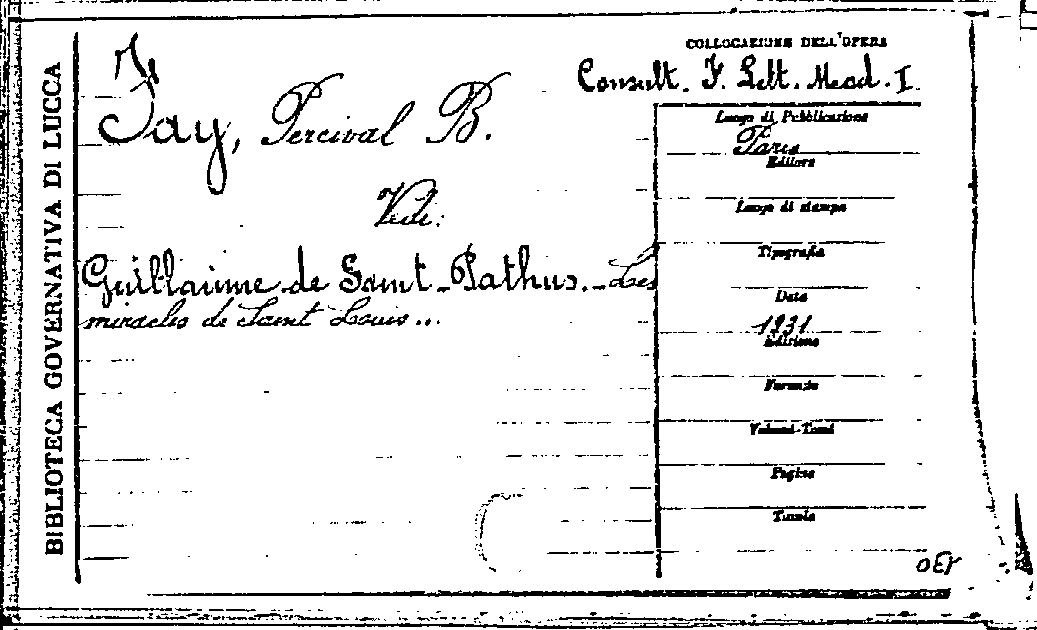 BIBLIOTECA GOVERNATIVA DI LUCCA
Fay, Percival B.
Vedi:
Guillaume de Saint-Pathus.-Les
miracles de Saint Louis...
COLLOCAZIONE DELL'OPERA
Consult. F. Lett. Mead. I.
Luogo di Pubblicazione
Paris
Editore
Luogo di stampa
Tipografia
Data
1931
Edizione
Formato
Volumi-Tomi
Pagine
Tavole